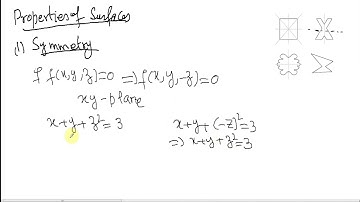 Properties of Surfaces
(1) Symmetry
If f(x,y,z)=0 ⇒ f(x,y,-z)=0
xy-plane
x+y+z²=3
x+y+(-z)²=3
⇒ x+y+z²=3